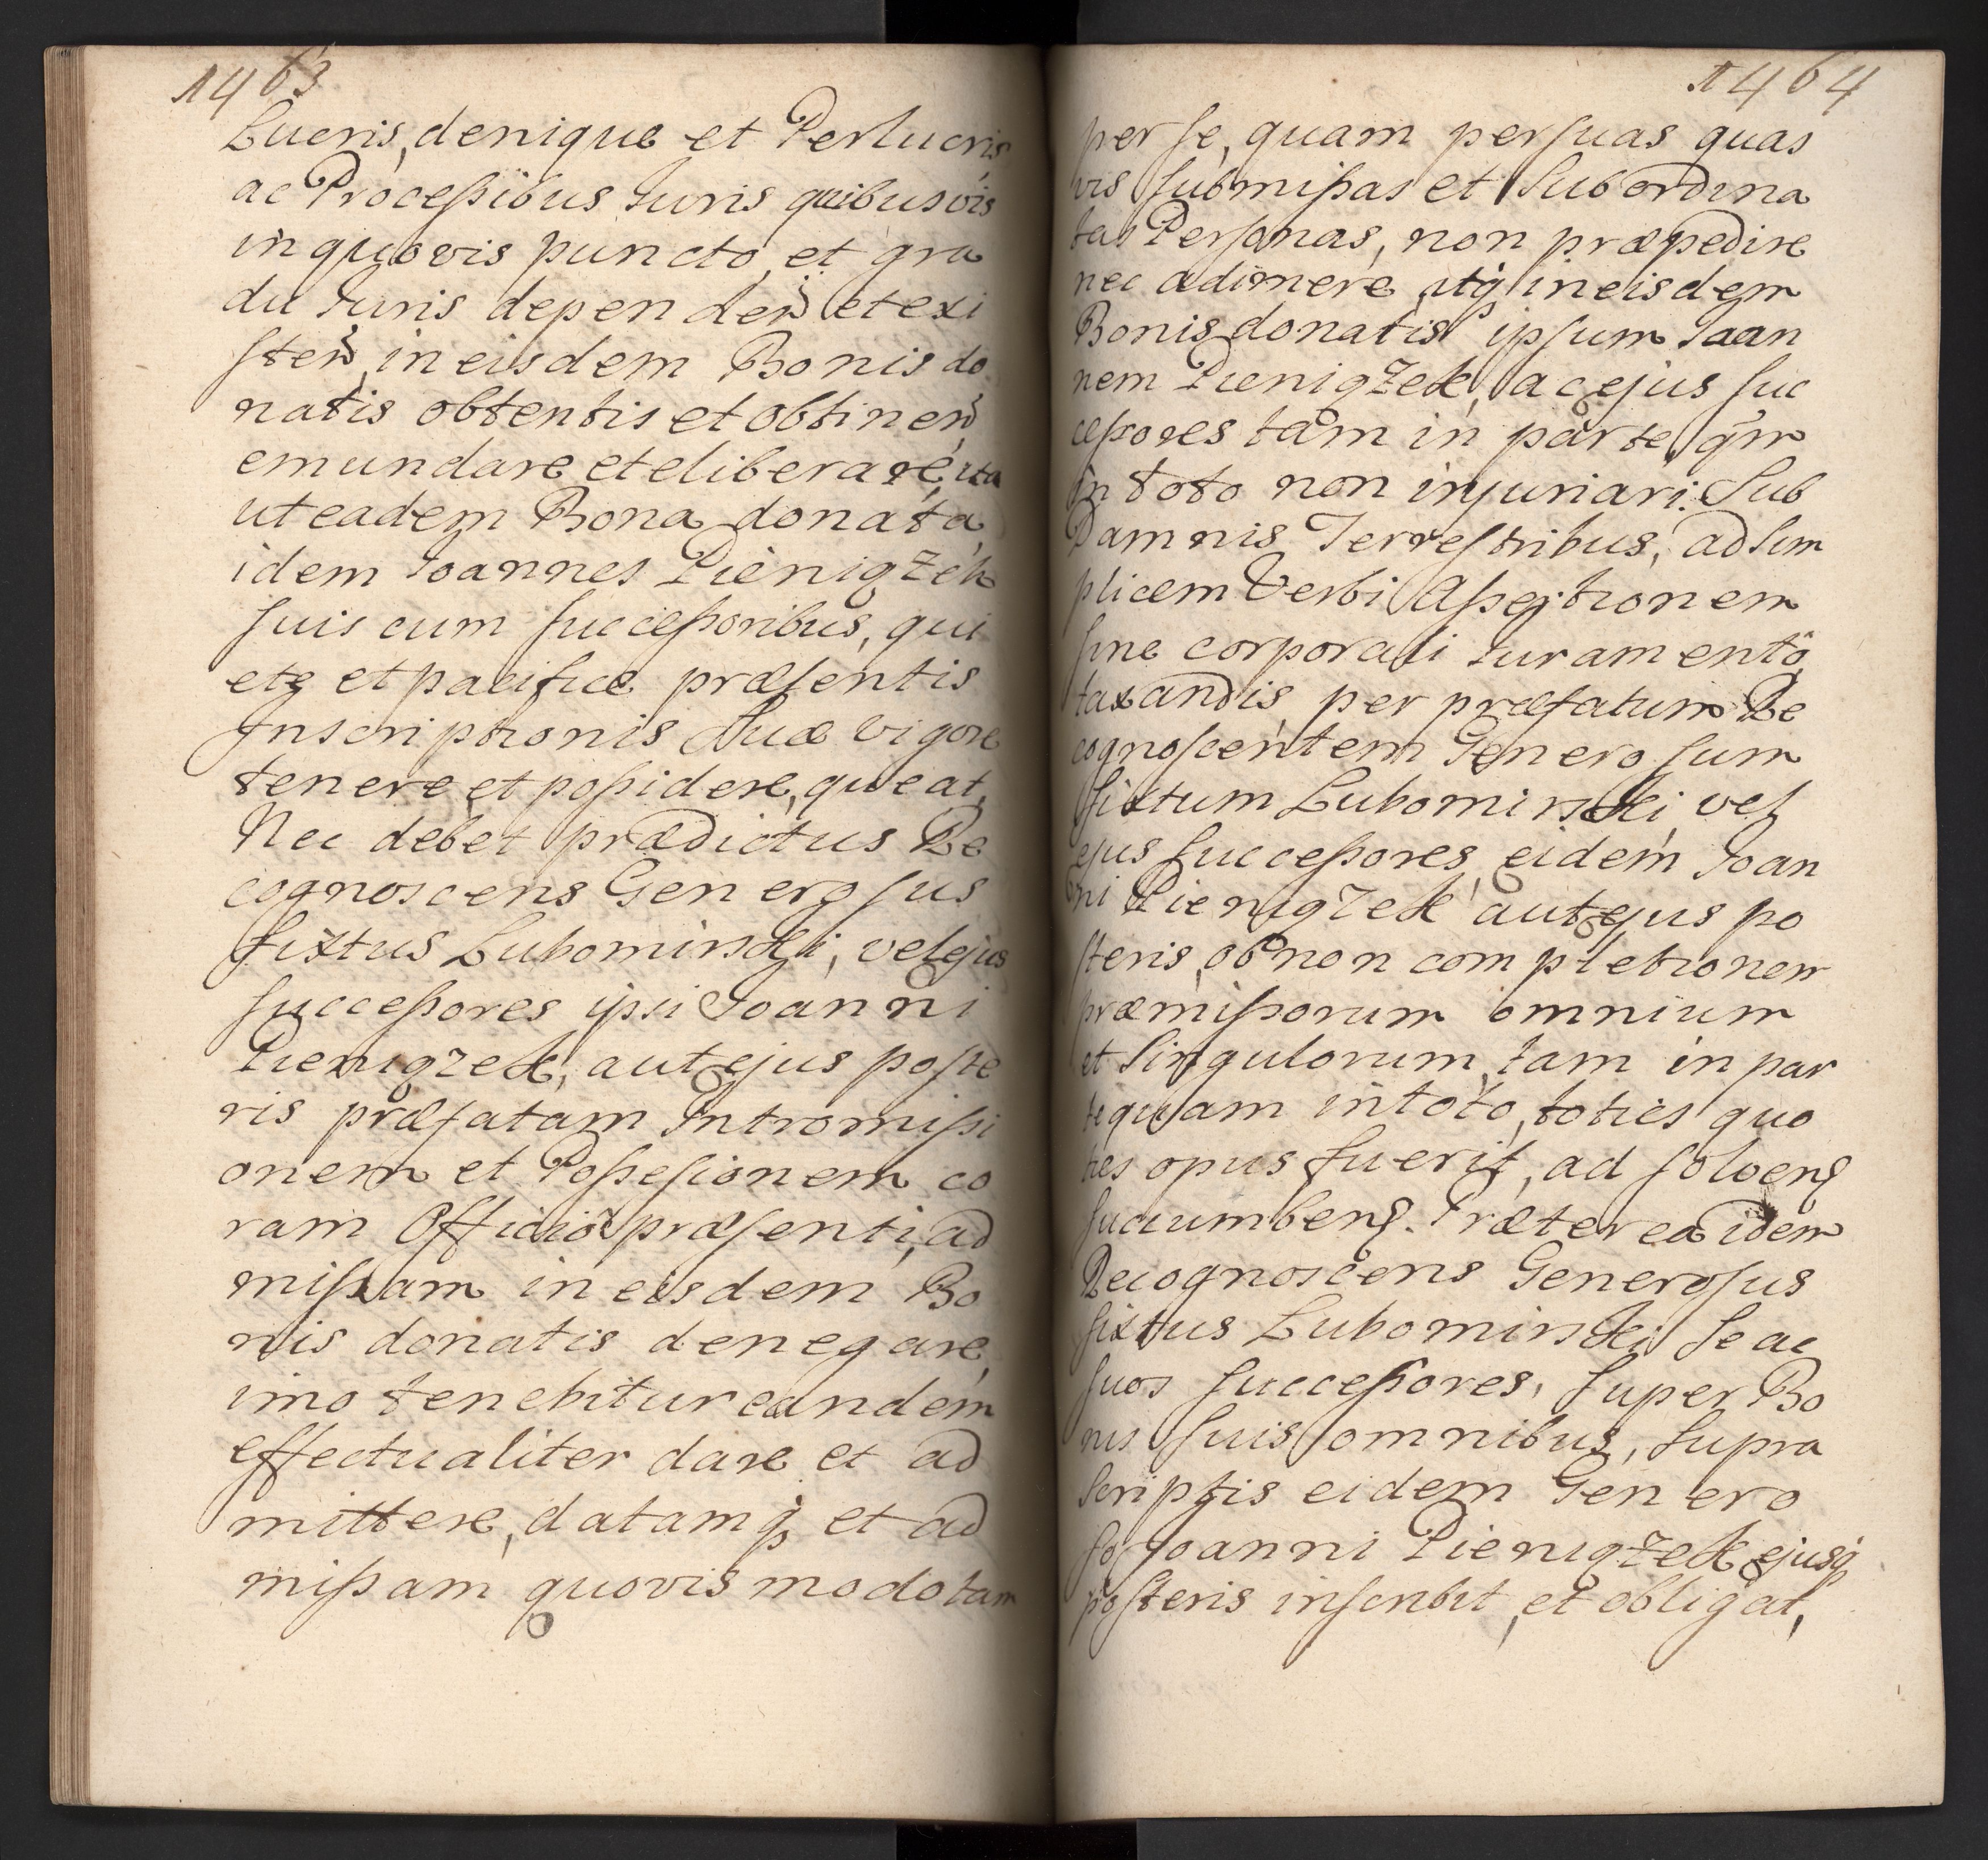 1463
Lucris, denique et Perlucris
ac Proceſsibus Iuris quibusvis
in quovis puncto, et gra
du Iuris depen den̄ et exi
ſten̄, in eisdem Bonis do
natis obtentis et obtinen̄,
emundare et eliberare, ita
ut eadem Bona donata
idem Ioannes Pieniążek
ſuis cum ſucceſsoribus, qui
etę et pacifice præſentis
Inscriptionis suæ vigore
tenere et poſsidere, queat,
Nec debet prædictus Re
cognoscens Generoſus
Sixtus Lubomirski, vel ejus
ſucceſsores ipsi Ioanni
Pieniązek, aut ejus poſte
ris præfatam Intromiſsi
onem et Poſseſionem co
ram Officio præſenti, ad
miſsam in eisdem Bo
nis donatis denegare,
imo tenebitur eandem
effectualiter dare et ad
mittere, datamq, et ad
miſsam quovis modo tam
1464
per ſe, quam per ſuas quas
vis ſubmiſsas et Subordina
tas Perſonas, non præpedire
nec adimere, utq, in eisdem
Bonis donatis ipſum Ioan
nem Pieniążek, ac ejus ſuc
ceſsores tam in parte, qm
in toto non injuriari. Sub
Damnis Terreſtribus, ad Sim
plicem Verbi Aſsertionem
ſine corporali Iuramento,
taxandis, per præfatum Re
cognoſcentem Generoſum
Sixtum Lubomirski, vel
ejus ſucceſsores, eidem Ioan
ni Pieniązek aut ejus po
ſteris, ob non completionem
præmiſsorum omnium
et Singulorum, tam in par
te quam in toto, toties quo
ties opus fuerit, ad ſolvenę
ſuccumbenę. Præterea idem
Recognoscens Generoſus
Sixtus Lubomirski Se ac
ſuos ſucceſsores, Super Bo
nis ſuis omnibus, Supra
Scriptis eidem Genero
ſo Ioanni Pieniążek ejusq
poſteris inſcribit, et obligat,